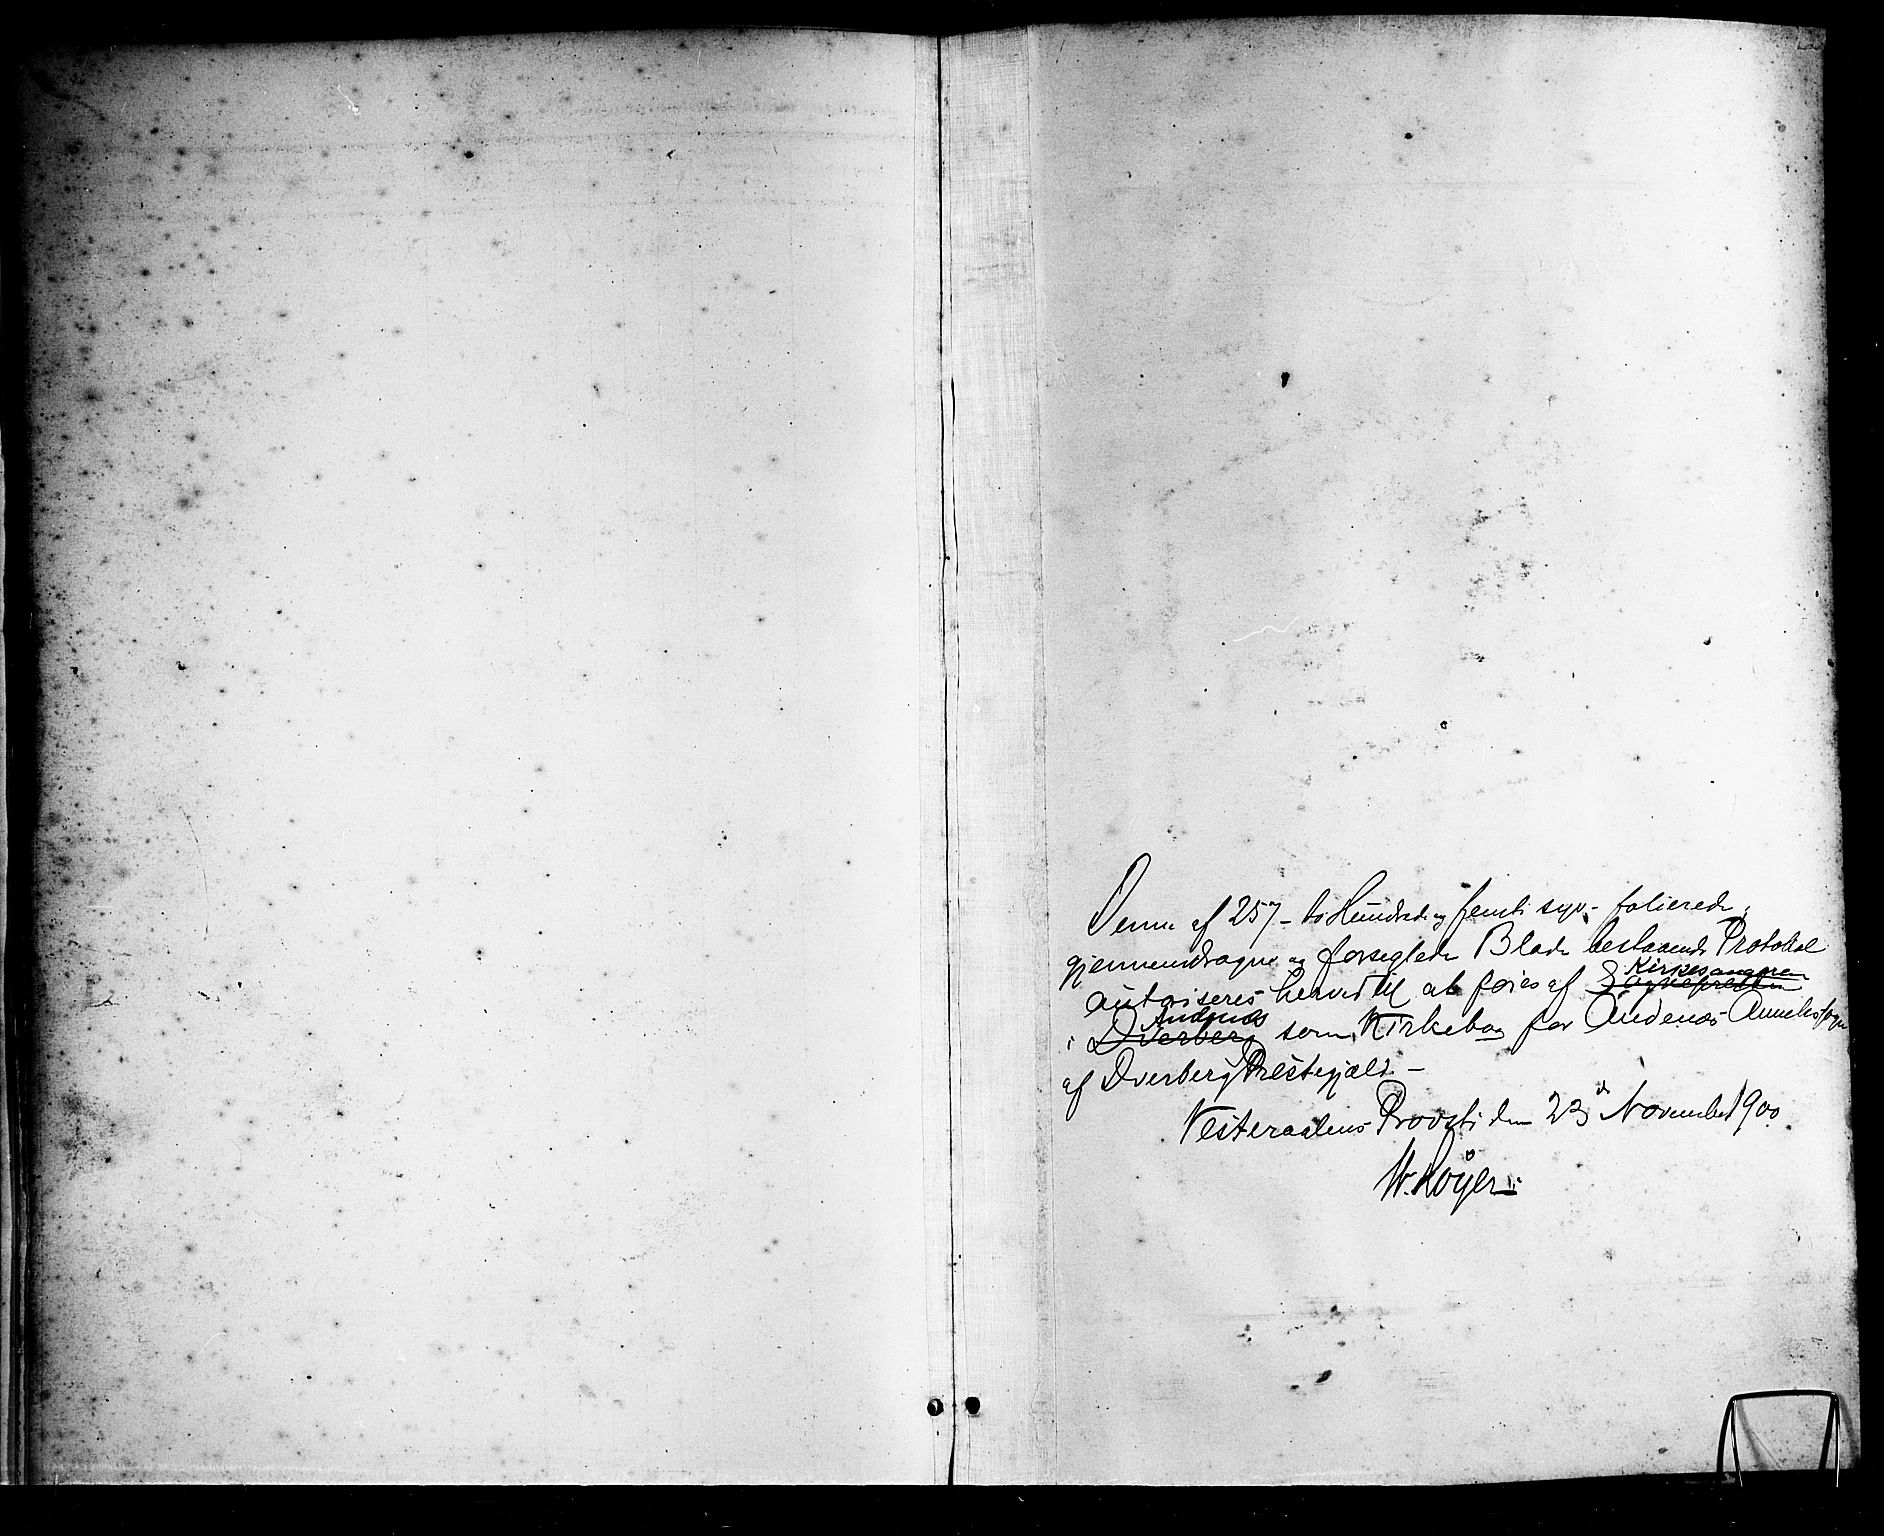 Denne af 257 - to Hundrede og femti syv - folierede,
gjennemdragne og forseglede Blade bestaaende Protokol
autoriseres herved til at føres af Sognepresten Kirkesangeren
i Dverberg Andenæs som Kirkebog for Andenæs Annekssogn
af Dverberg Præstegjæld. -
Vesteraalens Provsti den 23de November 1900.
W. Røyer.